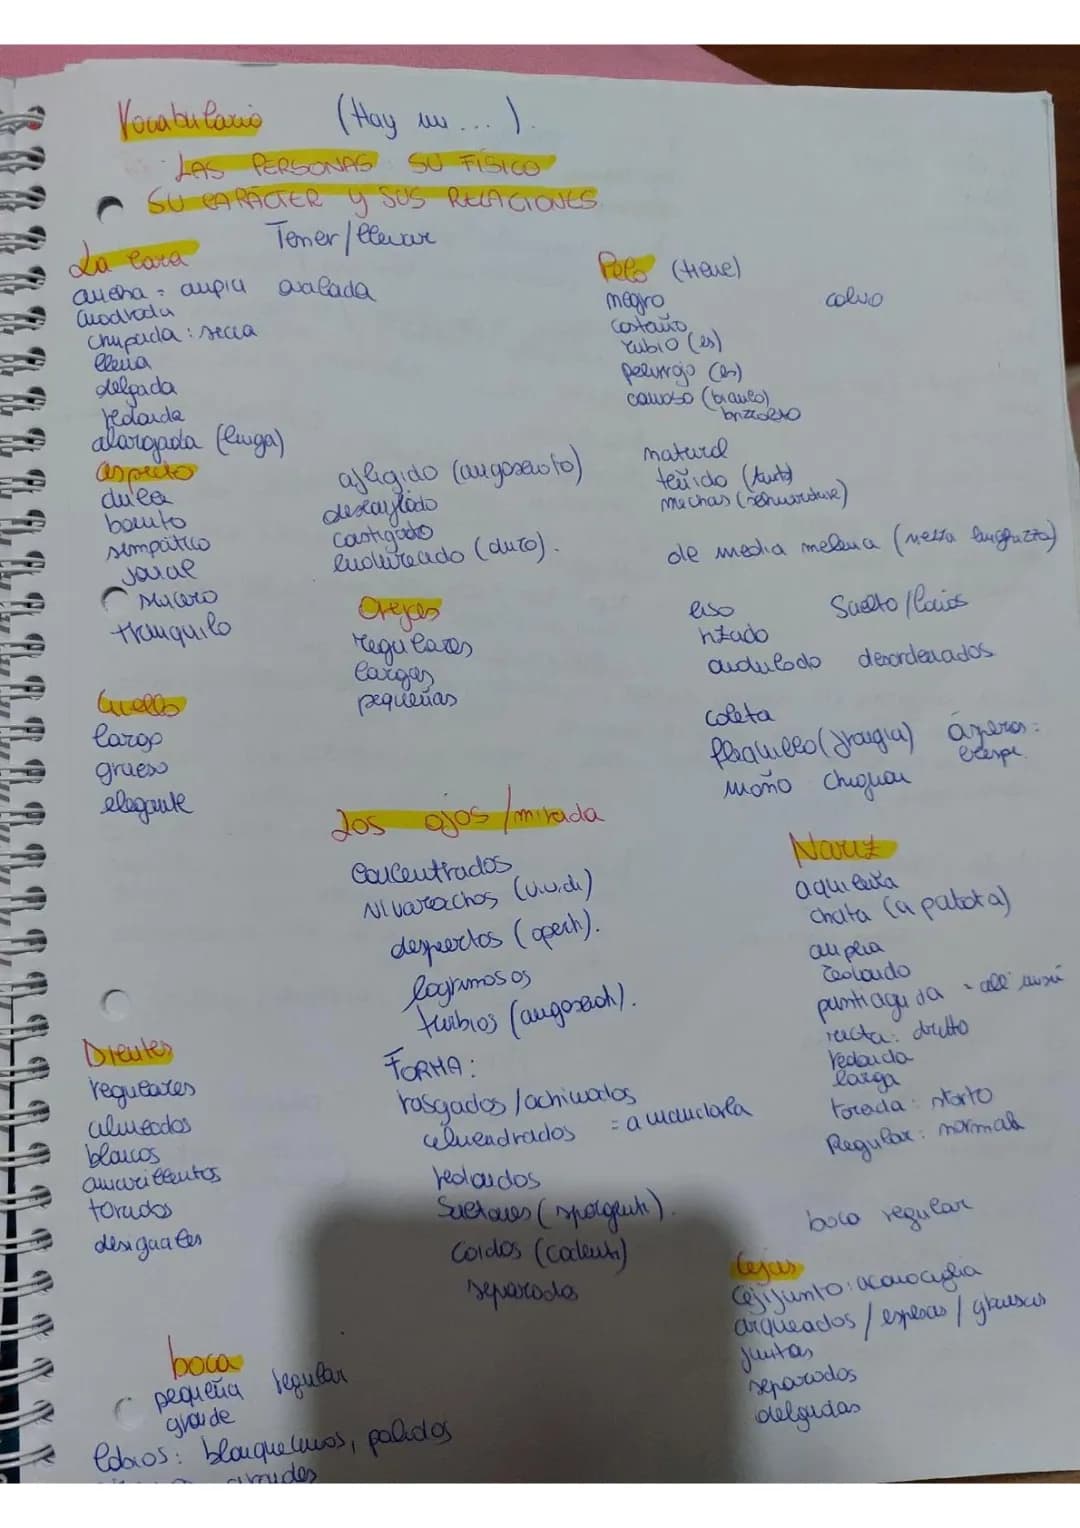 Vocabulario (Hay un ... ).
LAS PERSONAS SU FÍSICO
SU CARÁCTER y SUS RELACIONES
Tener/llevar
La cara
ancha = ampia ovalada
cuadrada
chupada : secca
llena
delgada
redonda
alargada (lunga)
aspecto
dulce
bonito
simpático
jovial
sincero
tranquilo
afligido (angosciato)
castigado
endurecido (duro).
Orejas
regulares
largas
pequeñas
Cuello
largo
grueso
elegante
Pelo (tiene)
negro calvo
castaño
rubio (es)
pelirrojo (es)
canoso (blanco)
brizzolato
natural
teñido (tinto)
mechas
de media melena (mezza lunghezza)
liso Suelto/lacios
rizado
ondulado desordenados
coleta
flequillo (frangia) ásperos:
crespi
moño chignon
Los ojos/mirada
concentrados
vivarachos (vividi)
despiertos (aperti).
lagrimosos
turbios (angosciati).
FORMA:
rasgados /achinados
almendrados = a mandorla
redondos
Saltones (sporgenti).
caídos (cadenti)
separados
Nariz
aguileña
chata (a patata)
amplia
redondo
puntiaguda = all' insù
recta: dritto
redonda
larga
torcida: storto
Regular: normale
boca regular
Dientes
regulares
alineados
blancos
amarillentos
torcidos
desiguales
Cejas
Cejijunto: monociglia
arqueadas / espesas / gruesas
juntas
separadas
delgadas
boca
pequeña regular
grande
labios: blanquecinos, pálidos
grandes